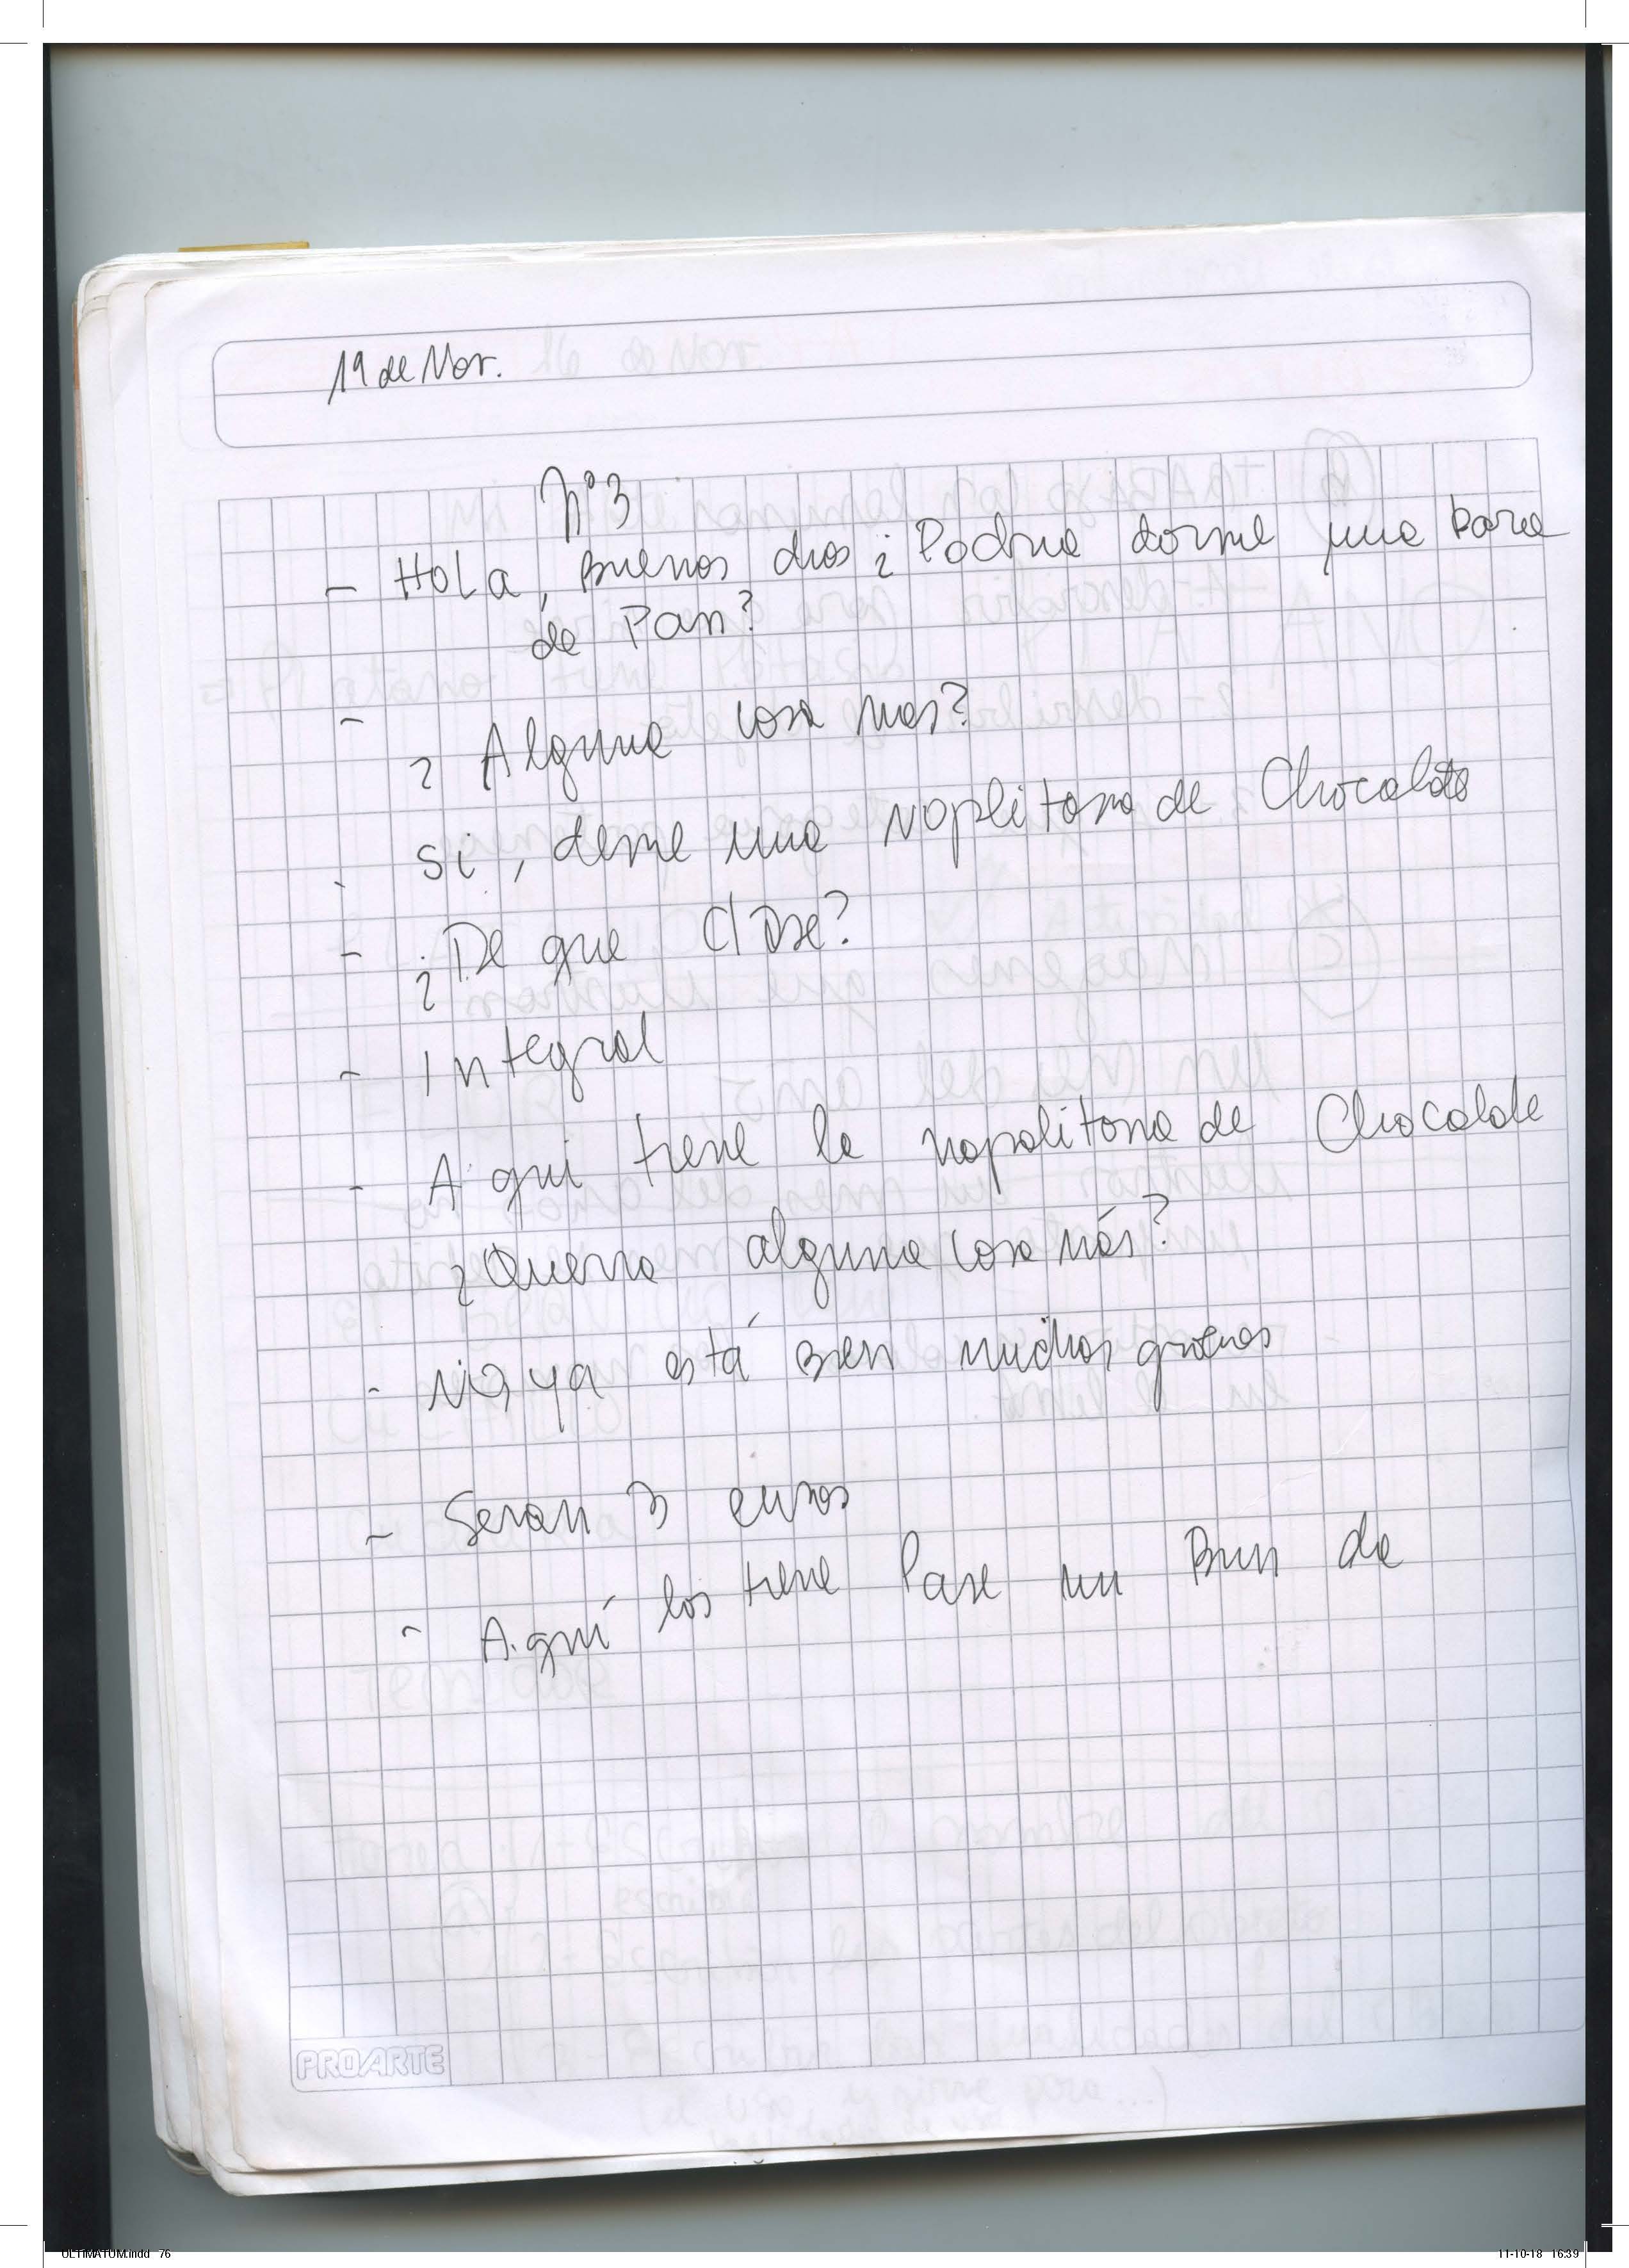 19 de Nov.
Nº3
- Hola, Buenos dias ¿Podria darme una barra
de Pan?
- ¿Alguna cosa mas?
- Si, deme una naplitana de Chocolate
- ¿De que Clase?
- Integral
- Aqui tiene la napolitana de Chocolate
¿Querra alguna cosa más?
- No, ya está Bien muchas gracias
- Seran 3 euros
- Aquí los tiene Pase un Buen dia
PROARTE
OLTIMATUM.indd 76
11-10-18 16:39